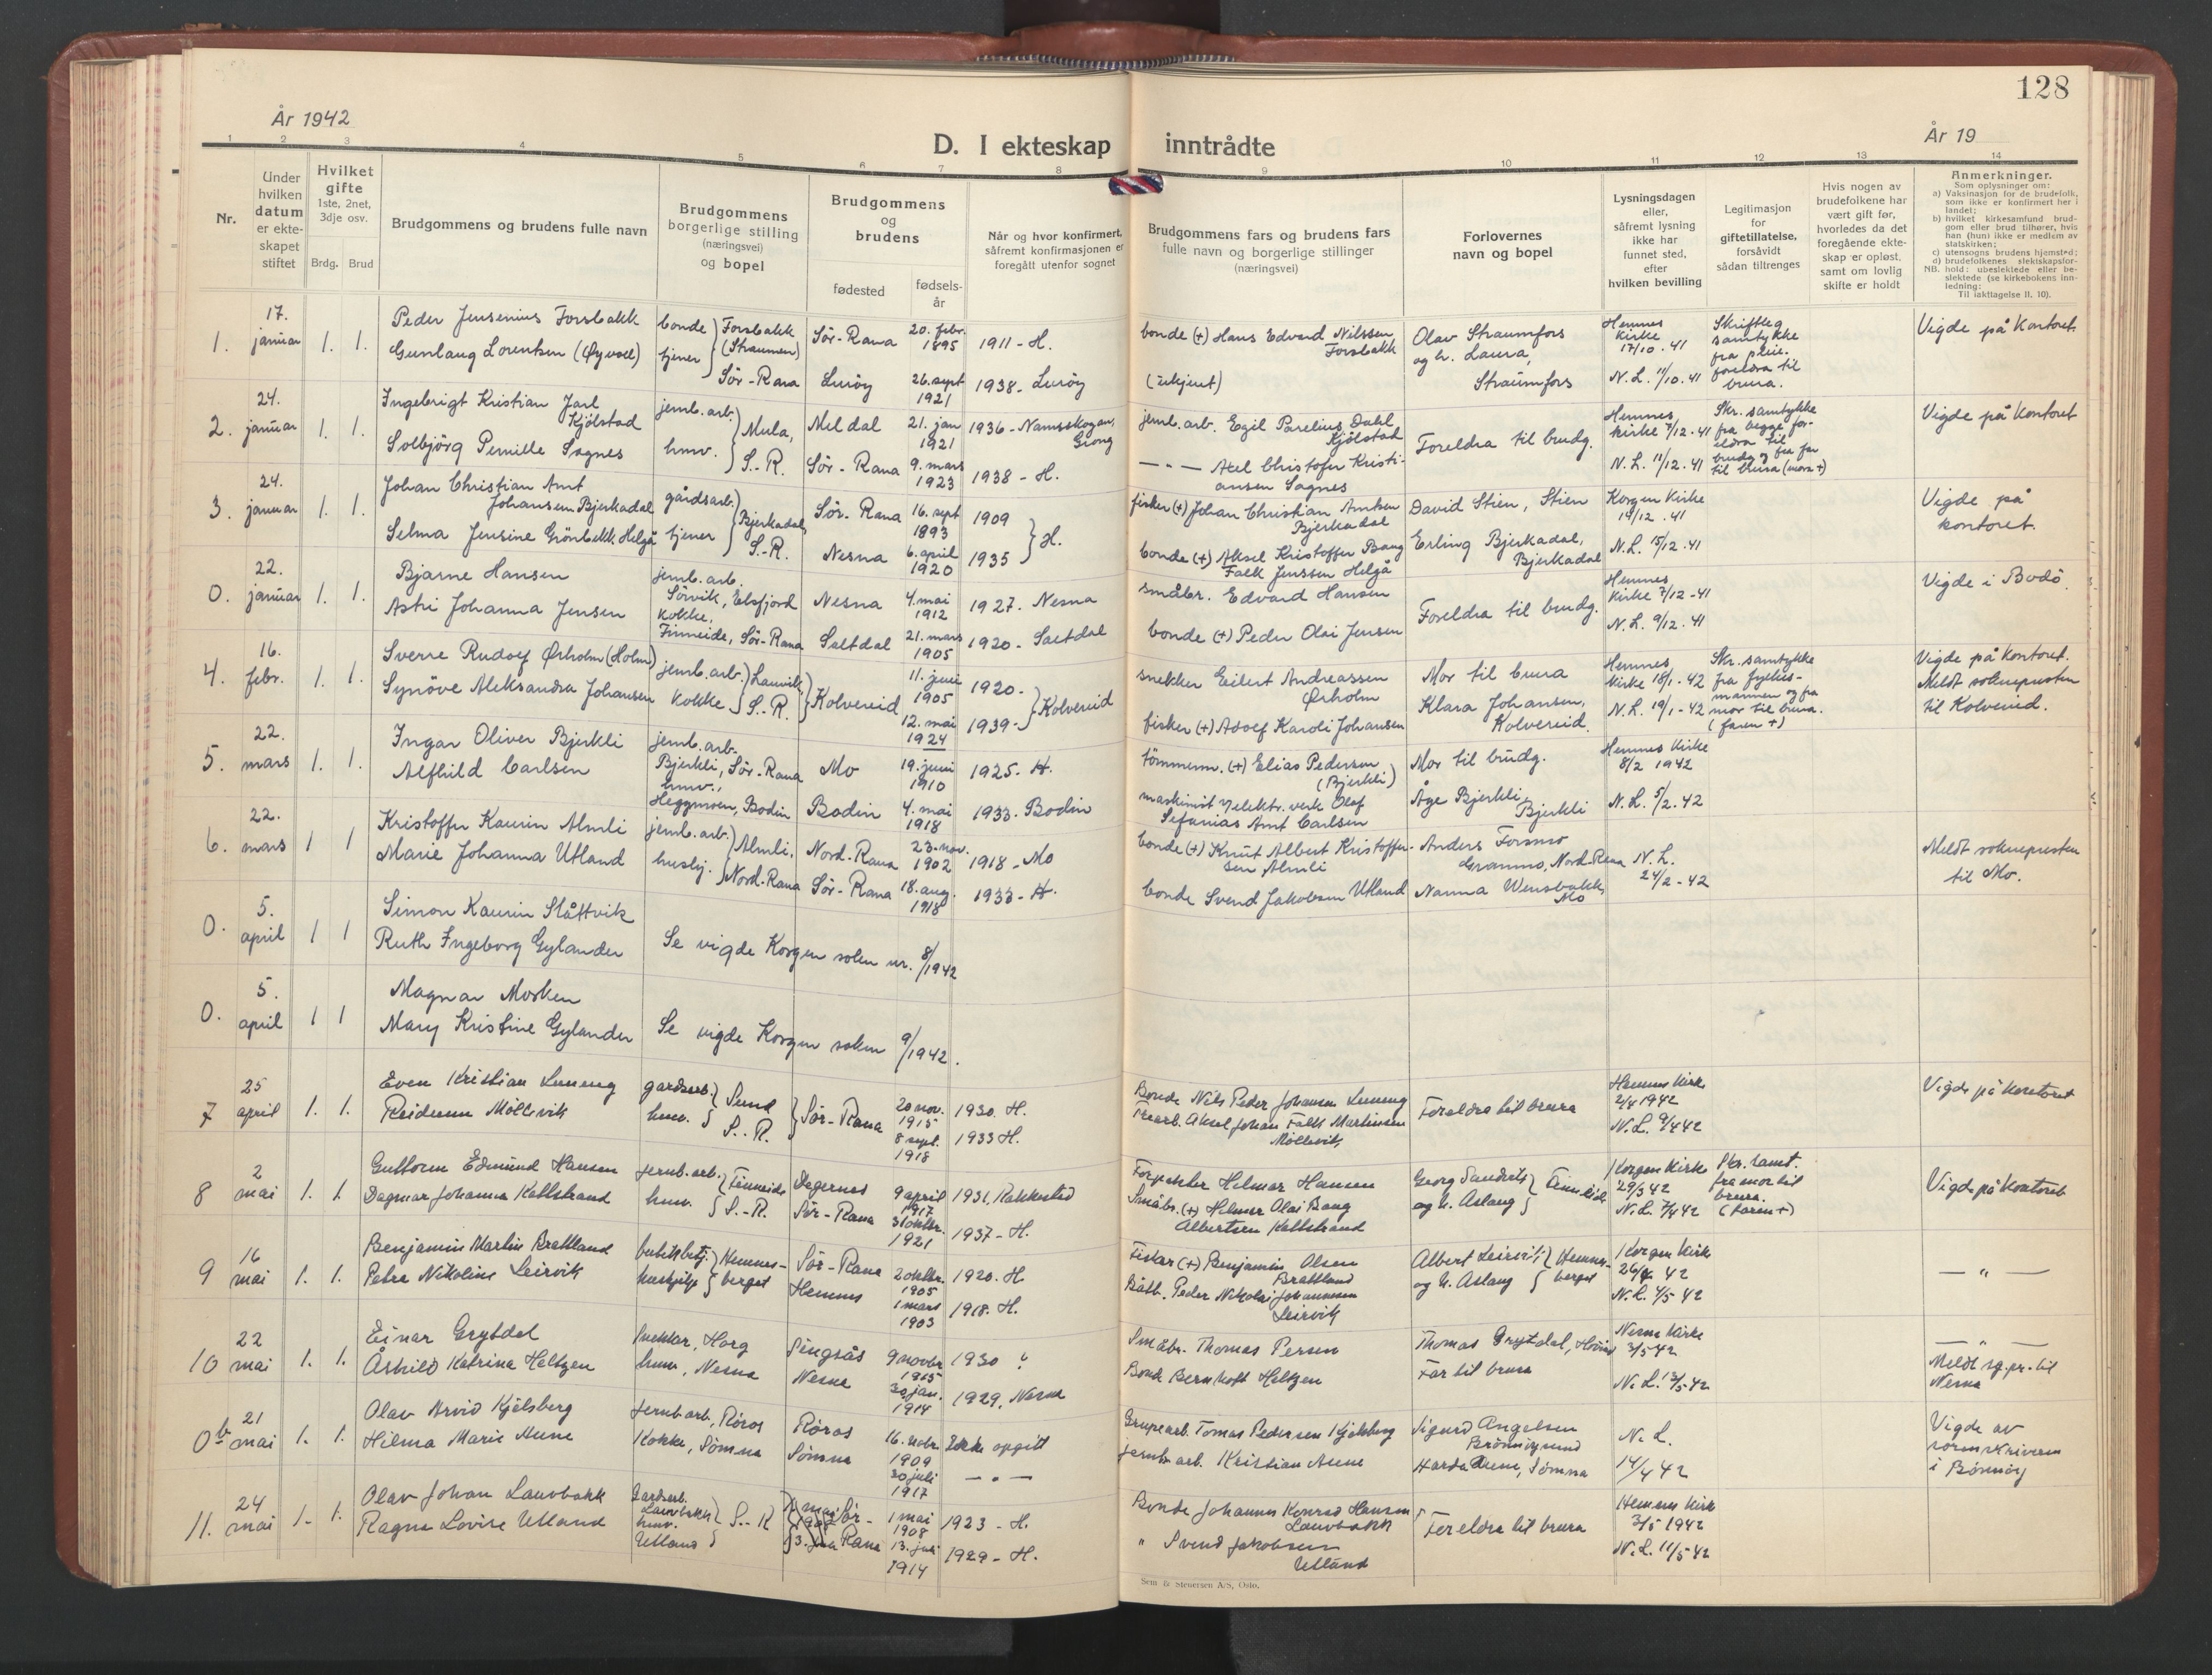 128
År 1942
D. I ekteskap inntrådte
År 19
1 2 3 4 5 6 7 8 9 10 11 12 13 14
Nr.
Under
hvilken
datum
er ekte-
skapet
stiftet
Hvilket
gifte
1ste, 2net,
3dje osv.
Brdg. Brud
Brudgommens og brudens fulle navn
Brudgommens
borgerlige stilling
(næringsvei)
og bopel
Brudgommens
og
brudens
fødested
fødsels-
år
Når og hvor konfirmert,
såfremt konfirmasjonen er
foregått utenfor sognet
Brudgommens fars og brudens fars
fulle navn og borgerlige stillinger
(næringsvei)
Forlovernes
navn og bopel
Lysningsdagen
eller,
såfremt lysning
ikke har
funnet sted,
efter
hvilken bevilling
Legitimasjon
for
giftetillatelse,
forsåvidt
sådan tiltrenges
Hvis nogen av
brudefolkene har
vært gift før,
hvorledes da det
foregående ekte-
skap er opløst,
samt om lovlig
skifte er holdt
Anmerkninger.
Som oplysninger om:
a) Vaksinasjon for de brudefolk,
som ikke er konfirmert her i
landet;
b) hvilket kirkesamfund brud-
gom eller brud tilhører, hvis
han (hun) ikke er medlem av
statskirken;
c) utensogns brudens hjemsted;
d) brudefolkenes slektskapsfor-
NB. hold: ubeslektede eller be-
slektede (se kirkebokens inn-
ledning:
Til iakttagelse II. 10).
1. 17. januar 1. 1.
Peder Jensenius Forsbakk
Gunlaug Lorentsen (Øyvoll)
bonde
tjener
Forsbakk
(Straumen)
Sör-Rana
Sör-Rana 20. febr. 1895 1911 - H.
Lurøy 26. sept 1921 1938 - Lurøy
bonde (+) Hans Edvard Nilssen
Forsbakk
Olav Straumfors
og h. Laura,
Straumfors
Hemnes
Kirke
17/10. 41
N.L. 11/10. 41
Skriftleg
samtykke
fra pleie-
foreldra til
brura.
Vigde på Kontoret
2. 24. januar 1. 1.
Ingebrigt Kristian Jarl
Kjölstad
Solbjörg Pernille Sagnes
jernb. arb.
hmv.
Mula,
S.-R.
Meldal 21. jan 1921 1936 - Namsskogan, Grong
Sör-Rana 9. mars 1923 1938 - H.
jernb. arb. Egil Parelius Dahl
Kjölstad
— „ — Axel Christofer Kristi-
ansen Sagnes
Foreldra til brudg.
Hemnes
kirke 7/12. 41
N.L. 11/12. 41
Skr. samtykke
fra begge for-
eldra til
brudg og fra far
til brura (mora +)
Vigde på Kontoret
3. 24. januar 1. 1.
Johan Christian Amt
Johansen Bjerkadal
Selma Jensine Grönbekk Helgå
gårdsarb.
tjener
Bjerkadal
S.-R.
Sör-Rana 16. sept 1893 1909
Nesna 6. april 1920 1935
H.
fisker (+) Johan Christian Amtsen
Bjerkadal
bonde (+) Aksel Kristoffer Bang
Falk Jenssen Helgå
David Stien, Stien
Erling Bjerkadal,
Bjerkadal
Korgen Kirke
14/12. 41
N.L. 15/12. 41
Vigde på
kontoret.
0. 22. januar 1. 1.
Bjarne Hansen
Astri Johanna Jensen
jernb. arb.
Sörvik, Elsfjord
kokke,
Finneide, Sör-Rana
Nesna 4. mai 1912 1927. Nesna
Saltdal 21. mars 1905 1920. Saltdal
småbr. Edvard Hansen
bonde (+) Peder Olai Jensen
Foreldra til brudg.
Hemnes
Kirke 7/12 - 41
N.L. 9/12. 41
Vigde i Bodö.
4. 16. febr. 1. 1.
Sverre Rudolf Ørholm (Holm)
Synöve Aleksandra Johansen
jernb. arb.
kokke
S.-R.
Kolvereid
11. juni 1905 1920 -
12. mai 1924 1939 -
Kolvereid
snekker Eilert Andreassen
Ørholm
fisker (+) Adolf Karoli Johansen
Mor til brura
Klara Johansen,
Kolvereid.
Hemnes
kirke 18/1 - 42
N.L. 19/1 - 42
Skr. samtykke
fra fylkes-
mannen og fra
mor til brura.
(faren +)
Vigde på kontoret.
Meldt sokneprosten
til Kolvereid.
5. 22. mars 1. 1.
Ingar Oliver Bjerkli
Alfhild Carlsen
jernb. arb.
Bjerkli, Sör-Rana
hmv.,
Heggmoen, Bodin
Mo 19. juni 1910 1925. H.
Bodin 4. mai 1918 1933. Bodin
tömmerm. (+) Elias Pedersen
(Bjerkli)
maskinist v/elektr. verk Olaf
Sefanias Amt Carlsen
Mor til brudg.
Åge Bjerkli,
Bjerkli
Hemnes Kirke
8/2 1942
N.L. 5/2. 42
6. 22. mars 1 1
Kristoffer Kaurin Almli
Marie Johanna Utland
jernb. arb.
hushj.
Almli,
Nord-Rana
Nord-Rana 23. nov. 1902 1918 - Mo
Sör-Rana 18. aug. 1918 1933 - H.
bonde (+) Knut Albert Kristoffer-
sen Almli
bonde Svend Jakobsen Utland
Anders Forsmo
Granmo, Nord-Rana
Nanna Wensbakk,
Mo
N.L.
24/2 - 42
Meldt sokneprosten
til Mo.
0. 5. april 1 1
Simon Kaurin Slåttvik
Ruth Ingeborg Gylander
Se vigde Korgen sokn nr. 8/1942
0. 5. april 1 1
Magnar Morken
Mary Kristine Gylander
Se vigde Korgen sokn 9/1942.
7 25 april 1. 1.
Even Kristian Luneng
Reidunn Möllevik
gardsarb.
hmv.
Sund
S.-R.
Sör-Rana
20 nov. 1915 1930. H.
8 sept. 1918 1933 H.
Bonde Nils Peder Johansen Luneng
Trearb. Aksel Johan Falk Martinsen
Möllevik
Foreldra til brura
Hemnes Kirke
2/4 1942
N.L. 9/4 42
Vigde på Kontoret
8 2 mai 1. 1.
Guttorm Edmund Hansen
Dagmar Johanna Kallstrand
Jernb. arb.
hmv.
Finneide
S.-R.
Degernes 9 april 1917 1931, Rakkestad
Sör-Rana 31 oktbr. 1921 1937 - H.
Forpakter Hilmar Hansen
Småbr. (+) Hilmer Olai Bang
Albertsen Kallstrand
Georg Sandnes
og h. Aslaug
Finneide
Korgen Kirke
29/3 42
N.L. 7/4 42
Skr. samt.
fra mor til
brura.
(Faren +)
Vigde på Kontoret
9 16 mai 1. 1.
Benjamin Martin Brattland
Petra Nikoline Leirvik
butikkbetj.
hushjelp
Hemnes-
berget
Sör-Rana 2 oktbr. 1905 1920. H.
Hemnes 1 mars 1903 1918. H.
Fiskar (+) Benjamin Olsen
Brattland
Båtb. Peder Nikolai Johannesen
Leirvik
Albert Leirvik
og h. Aslaug
Hemnes-
berget
Korgen Kirke
26/4 42
N.L. 4/5 42
— „ —
10 22 mai 1. 1.
Einar Grytdal
Åshild Katrina Heltzen
Snekkar, Horg
hmv, Nesna
Singsås 9 novbr 1915 1930 ?
Nesna 30 jan. 1914 1929, Nesna
Småbr. Thomas Persen
Bonde Bernhoft Heltzen
Thomas Grytdal, Hovin
Far til brura
Nesna Kirke
3/5 42
N.L. 13/5 42
— „ —
Meldt sg.pr. til
Nesna
0b 21 mai 1. 1.
Olav Arvid Kjölsberg
Hilma Marie Aune
Jernb arb, Röros
Kokke, Sömna
Röros 16. 1909 Ikke opgitt
Sömna 30 juli 1917 — „ —
Grupearb. Tomas Pedersen Kjölsberg
jernb arb. Kristian Aune
Sigurd Angelsen
Brönnöysund
Harda Aune, Sömna
N.L.
14/4 42
Vigde av
sorenskriveren
i Brönnöy
11. 24 mai 1. 1.
Olav Johan Lauvbakk
Ragna Lovise Utland
Gardsarb.
Lauvbakk
hmv.
Utland
S.-R
Sör-
Rana
1 mai 1908 1923 - H.
13. juli 1914 1929 - H.
Bonde Johannes Konrad Hansen
Lauvbakk
„ Svend Jakobsen
Utland
Foreldra til brura
Hemnes Kirk
3/5 1942
N.L. 11/5 42
Sem & Stenersen A/S, Oslo.